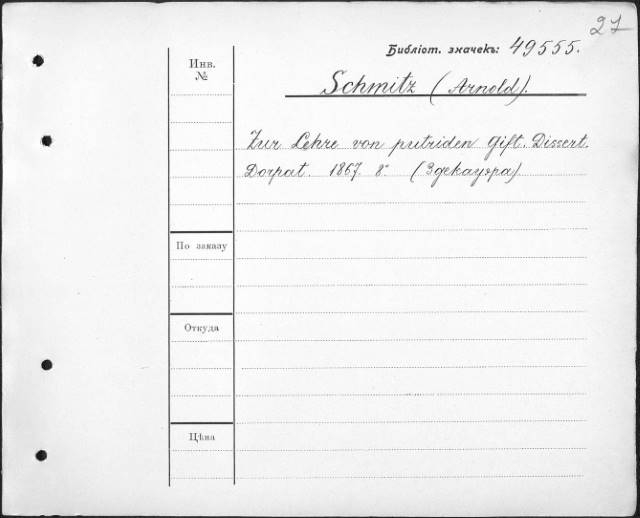 27
Библіот. значекъ: 49555.
Инв.
№
Schmitz (Arnold).
Zur Lehre von putriden Gift. Dissert.
Dorpat. 1867. 8° (Здекауэра)
По заказу
Откуда
Цѣна